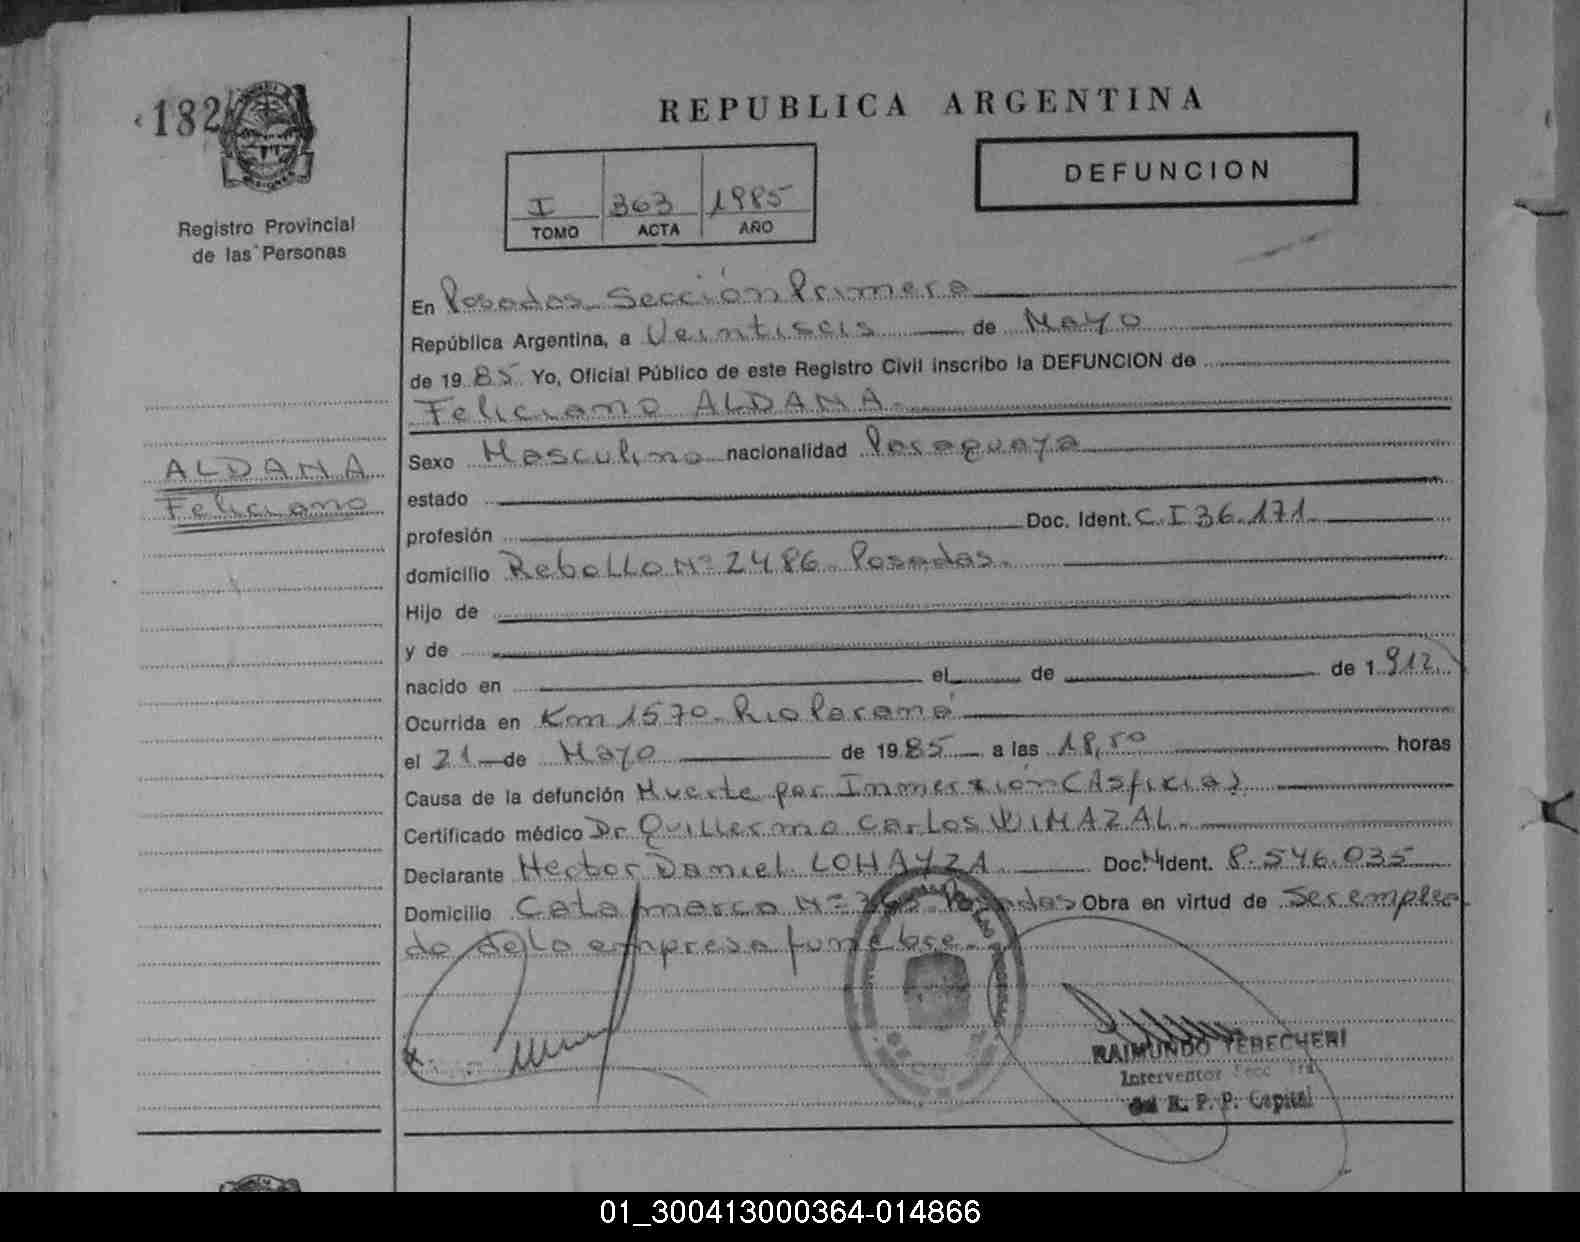 182
REPUBLICA ARGENTINA
DEFUNCION
I 363 1985
TOMO ACTA AÑO
Registro Provincial
de las Personas
En Posadas Sección Primera
República Argentina, a Veintiseis de Mayo
de 1985 Yo, Oficial Público de este Registro Civil inscribo la DEFUNCION de
Feliciano ALDANA
ALDANA
Feliciano
Sexo Masculino nacionalidad Paraguaya
estado
profesión Doc. Ident. C.I 36.171
domicilio Rebollo Nº 2486 Posadas.
Hijo de
y de
nacido en el de de 1912
Ocurrida en Km 1570 Rio Paraná
el 21 de Mayo de 1985 a las 18,50 horas
Causa de la defunción Muerte por Inmersión (Asfixia)
Certificado médico Dr Guillermo Carlos WIMAZAL.
Declarante Hector Daniel LOHAYZA Doc. Ident. 8.546.035
Domicilio Catamarca Nº Posadas Obra en virtud de Ser emplea
do de la empresa funebre.
RAIMUNDO YEBECHERI
Interventor Secc. 1ra
del R. P. P. Capital
01_300413000364-014866